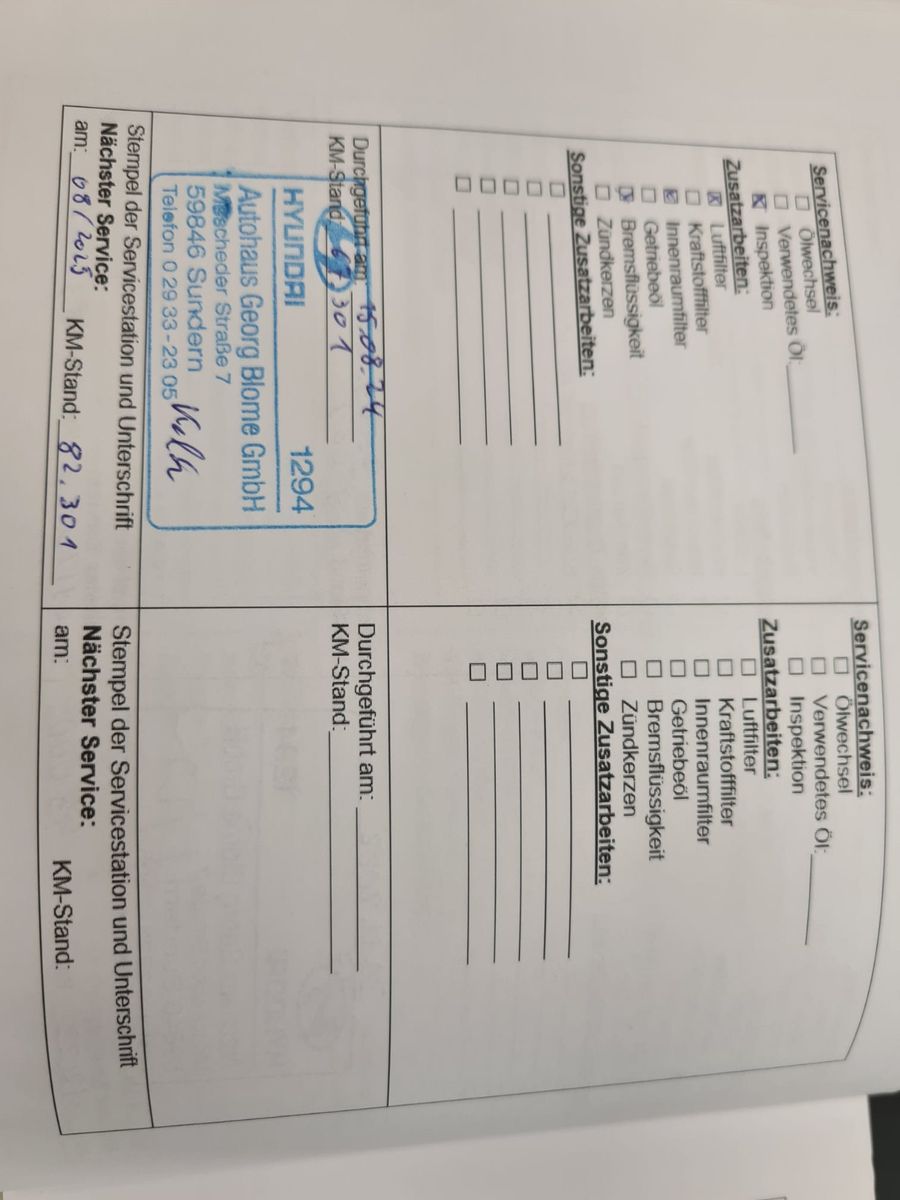 Servicenachweis:
☐ Ölwechsel
☐ Verwendetes Öl:
☒ Inspektion
Zusatzarbeiten:
☒ Luftfilter
☐ Kraftstofffilter
☒ Innenraumfilter
☐ Getriebeöl
☒ Bremsflüssigkeit
☐ Zündkerzen
Sonstige Zusatzarbeiten:
☐
☐
☐
☐
☐
Durchgeführt am: 15.08.24
KM-Stand: 67.301
HYUNDAI 1294
Autohaus Georg Blome GmbH
Mescheder Straße 7
59846 Sundern
Telefon 0 29 33 - 23 05
Stempel der Servicestation und Unterschrift
Nächster Service:
am: 08/2025 KM-Stand: 82.301
Servicenachweis:
☐ Ölwechsel
☐ Verwendetes Öl:
☐ Inspektion
Zusatzarbeiten:
☐ Luftfilter
☐ Kraftstofffilter
☐ Innenraumfilter
☐ Getriebeöl
☐ Bremsflüssigkeit
☐ Zündkerzen
Sonstige Zusatzarbeiten:
☐
☐
☐
☐
☐
Durchgeführt am:
KM-Stand:
Stempel der Servicestation und Unterschrift
Nächster Service:
am: KM-Stand: